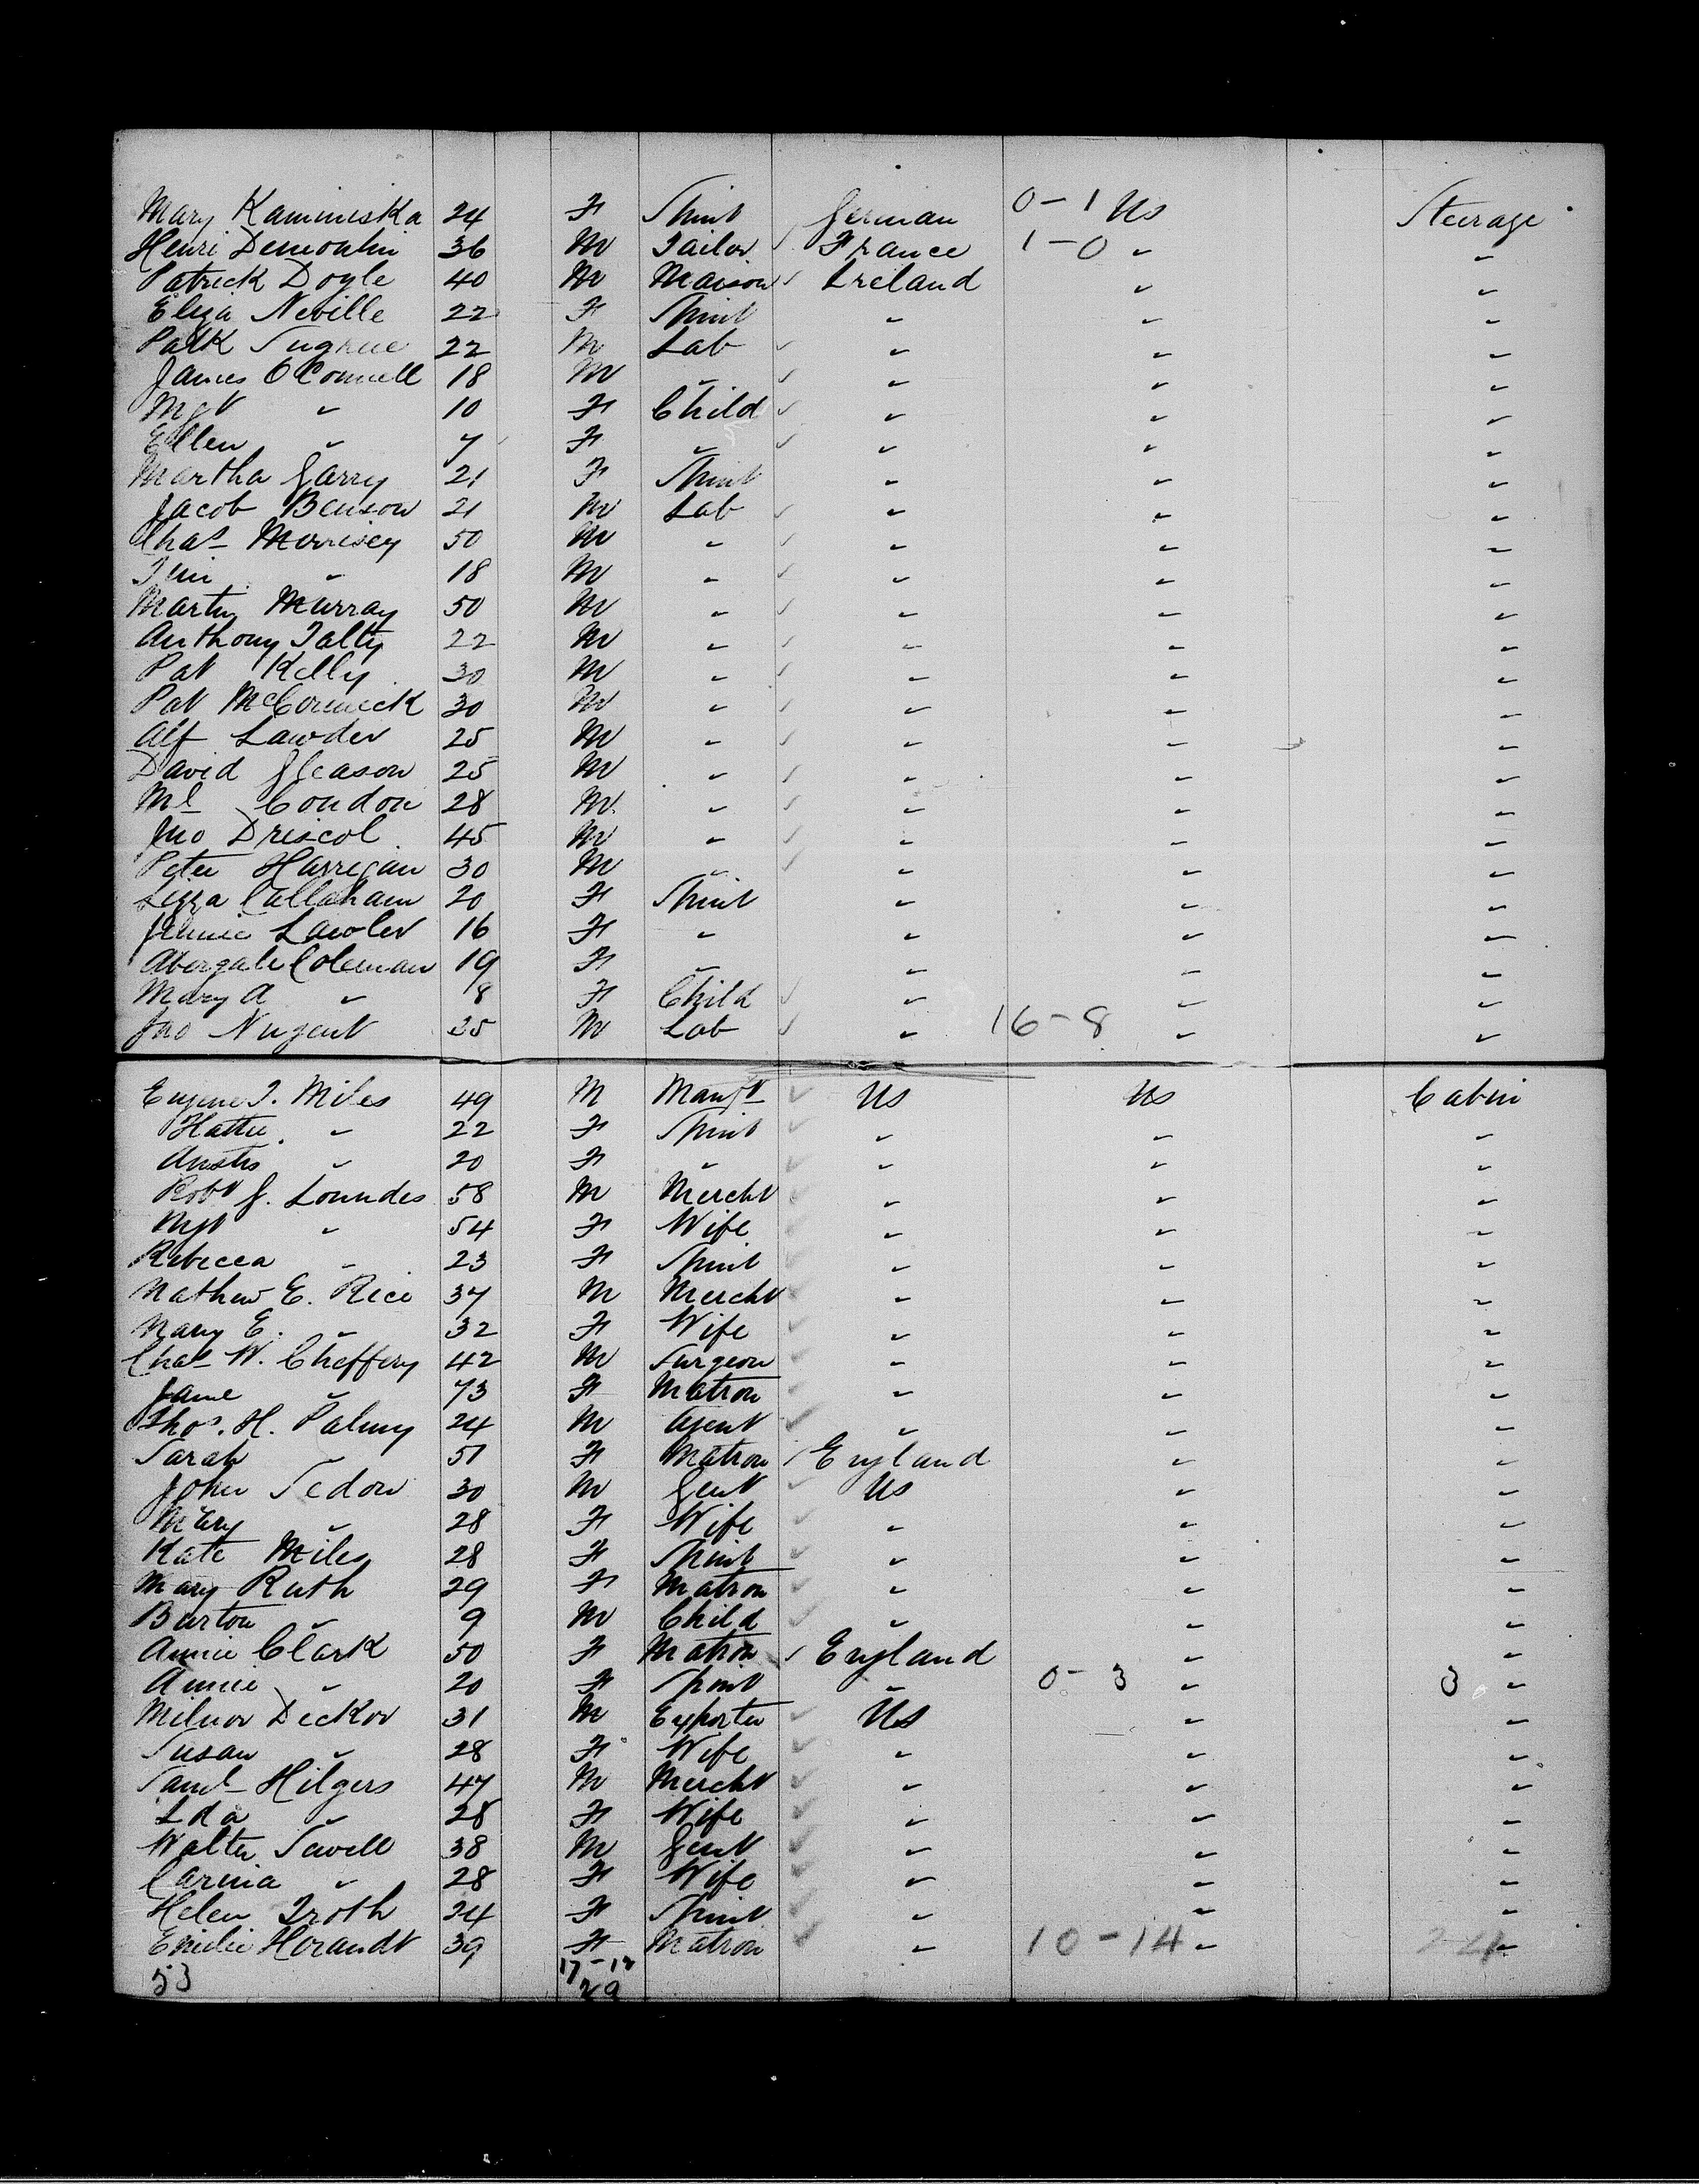 Mary Kaminiska 24 F Spint German 0-1 Us Steerage
Henri Demoulin 36 M Tailor ✓ France 1-0 " "
Patrick Doyle 40 M Maison ✓ Ireland " "
Eliza Neville 22 F Spint " " "
Patk Sugrue 22 M Lab ✓ " " "
James O'Connell 18 M " ✓ " " "
Mgt " 10 F Child ✓ " " "
Ellen " 7 F " ✓ " " "
Martha Garry 21 F Spint " " "
Jacob Benson 21 M Lab ✓ " " "
Chas Morrisey 50 M " ✓ " " "
Tim " 18 M " ✓ " " "
Martin Murray 50 M " ✓ " " "
Anthony Talty 22 M " ✓ " " "
Pat Kelly 30 M " ✓ " " "
Pat McCormick 30 M " ✓ " " "
Alf Lawder 25 M " ✓ " " "
David Gleason 25 M " ✓ " " "
Ml Condon 28 M " ✓ " " "
Jno Driscol 45 M " ✓ " " "
Peter Harrigan 30 M " ✓ " " "
Lizza Callaham 20 F Spint " " "
Jennie Lawler 16 F " " " "
Abergale Coleman 19 F " " " "
Mary A " 8 F Child ✓ " " "
Jno Nugent 25 M Lab ✓ " 16-8 " "
Eugene T. Miles 49 M Manft ✓ Us Us Cabin
Hattie " 22 F Spint ✓ " " "
Anstis " 20 F " ✓ " " "
Robt J. Lowndes 58 M Mercht ✓ " " "
Mgt " 54 F Wife ✓ " " "
Rebecca " 23 F Spint ✓ " " "
Mathew E. Rice 37 M Mercht ✓ " " "
Mary E. " 32 F Wife ✓ " " "
Chas W. Cheffery 42 M Surgeon ✓ " " "
Jane " 73 F Matron ✓ " " "
Thos. H. Palmy 24 M Agent ✓ " " "
Sarah " 51 F Matron ✓ England " "
John Sedon 30 M Gent ✓ Us " "
Mary " 28 F Wife ✓ " " "
Kate Miles 28 F Spint ✓ " " "
Mary Ruth 29 F Matron ✓ " " "
Burton " 9 M Child ✓ " " "
Annie Clark 50 F Matron ✓ England " "
Annie " 20 F Spint " 0-3 " 3 "
Milnor Deckor 31 M Exporter ✓ Us " "
Susan " 28 F Wife ✓ " " "
Saml Hilgers 47 M Mercht ✓ " " "
Ida " 28 F Wife ✓ " " "
Walter Sewell 38 M Gent ✓ " " "
Carina " 28 F Wife ✓ " " "
Helen Troth 24 F Spint ✓ " " "
Emilie Horandt 39 F Matron ✓ " 10-14 " 24 "
53 17-12
29